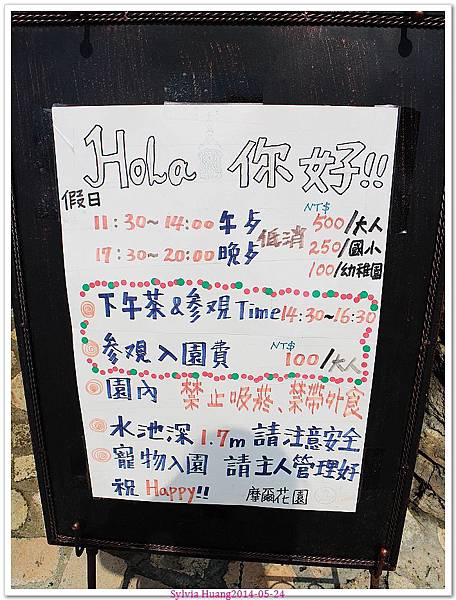 HoLa 你好!!
假日
11:30~14:00 午夕 低消 NT$ 500/大人
17:30~20:00 晚夕 250/國小
100/幼稚園
下午茶&參觀Time 14:30~16:30
參觀入園費 NT$ 100/大人
園內 禁止吸菸、禁帶外食
水池深1.7m請注意安全
寵物入園 請主人管理好
祝 Happy!! 摩爾花園
Sylvia Huang2014-05-24